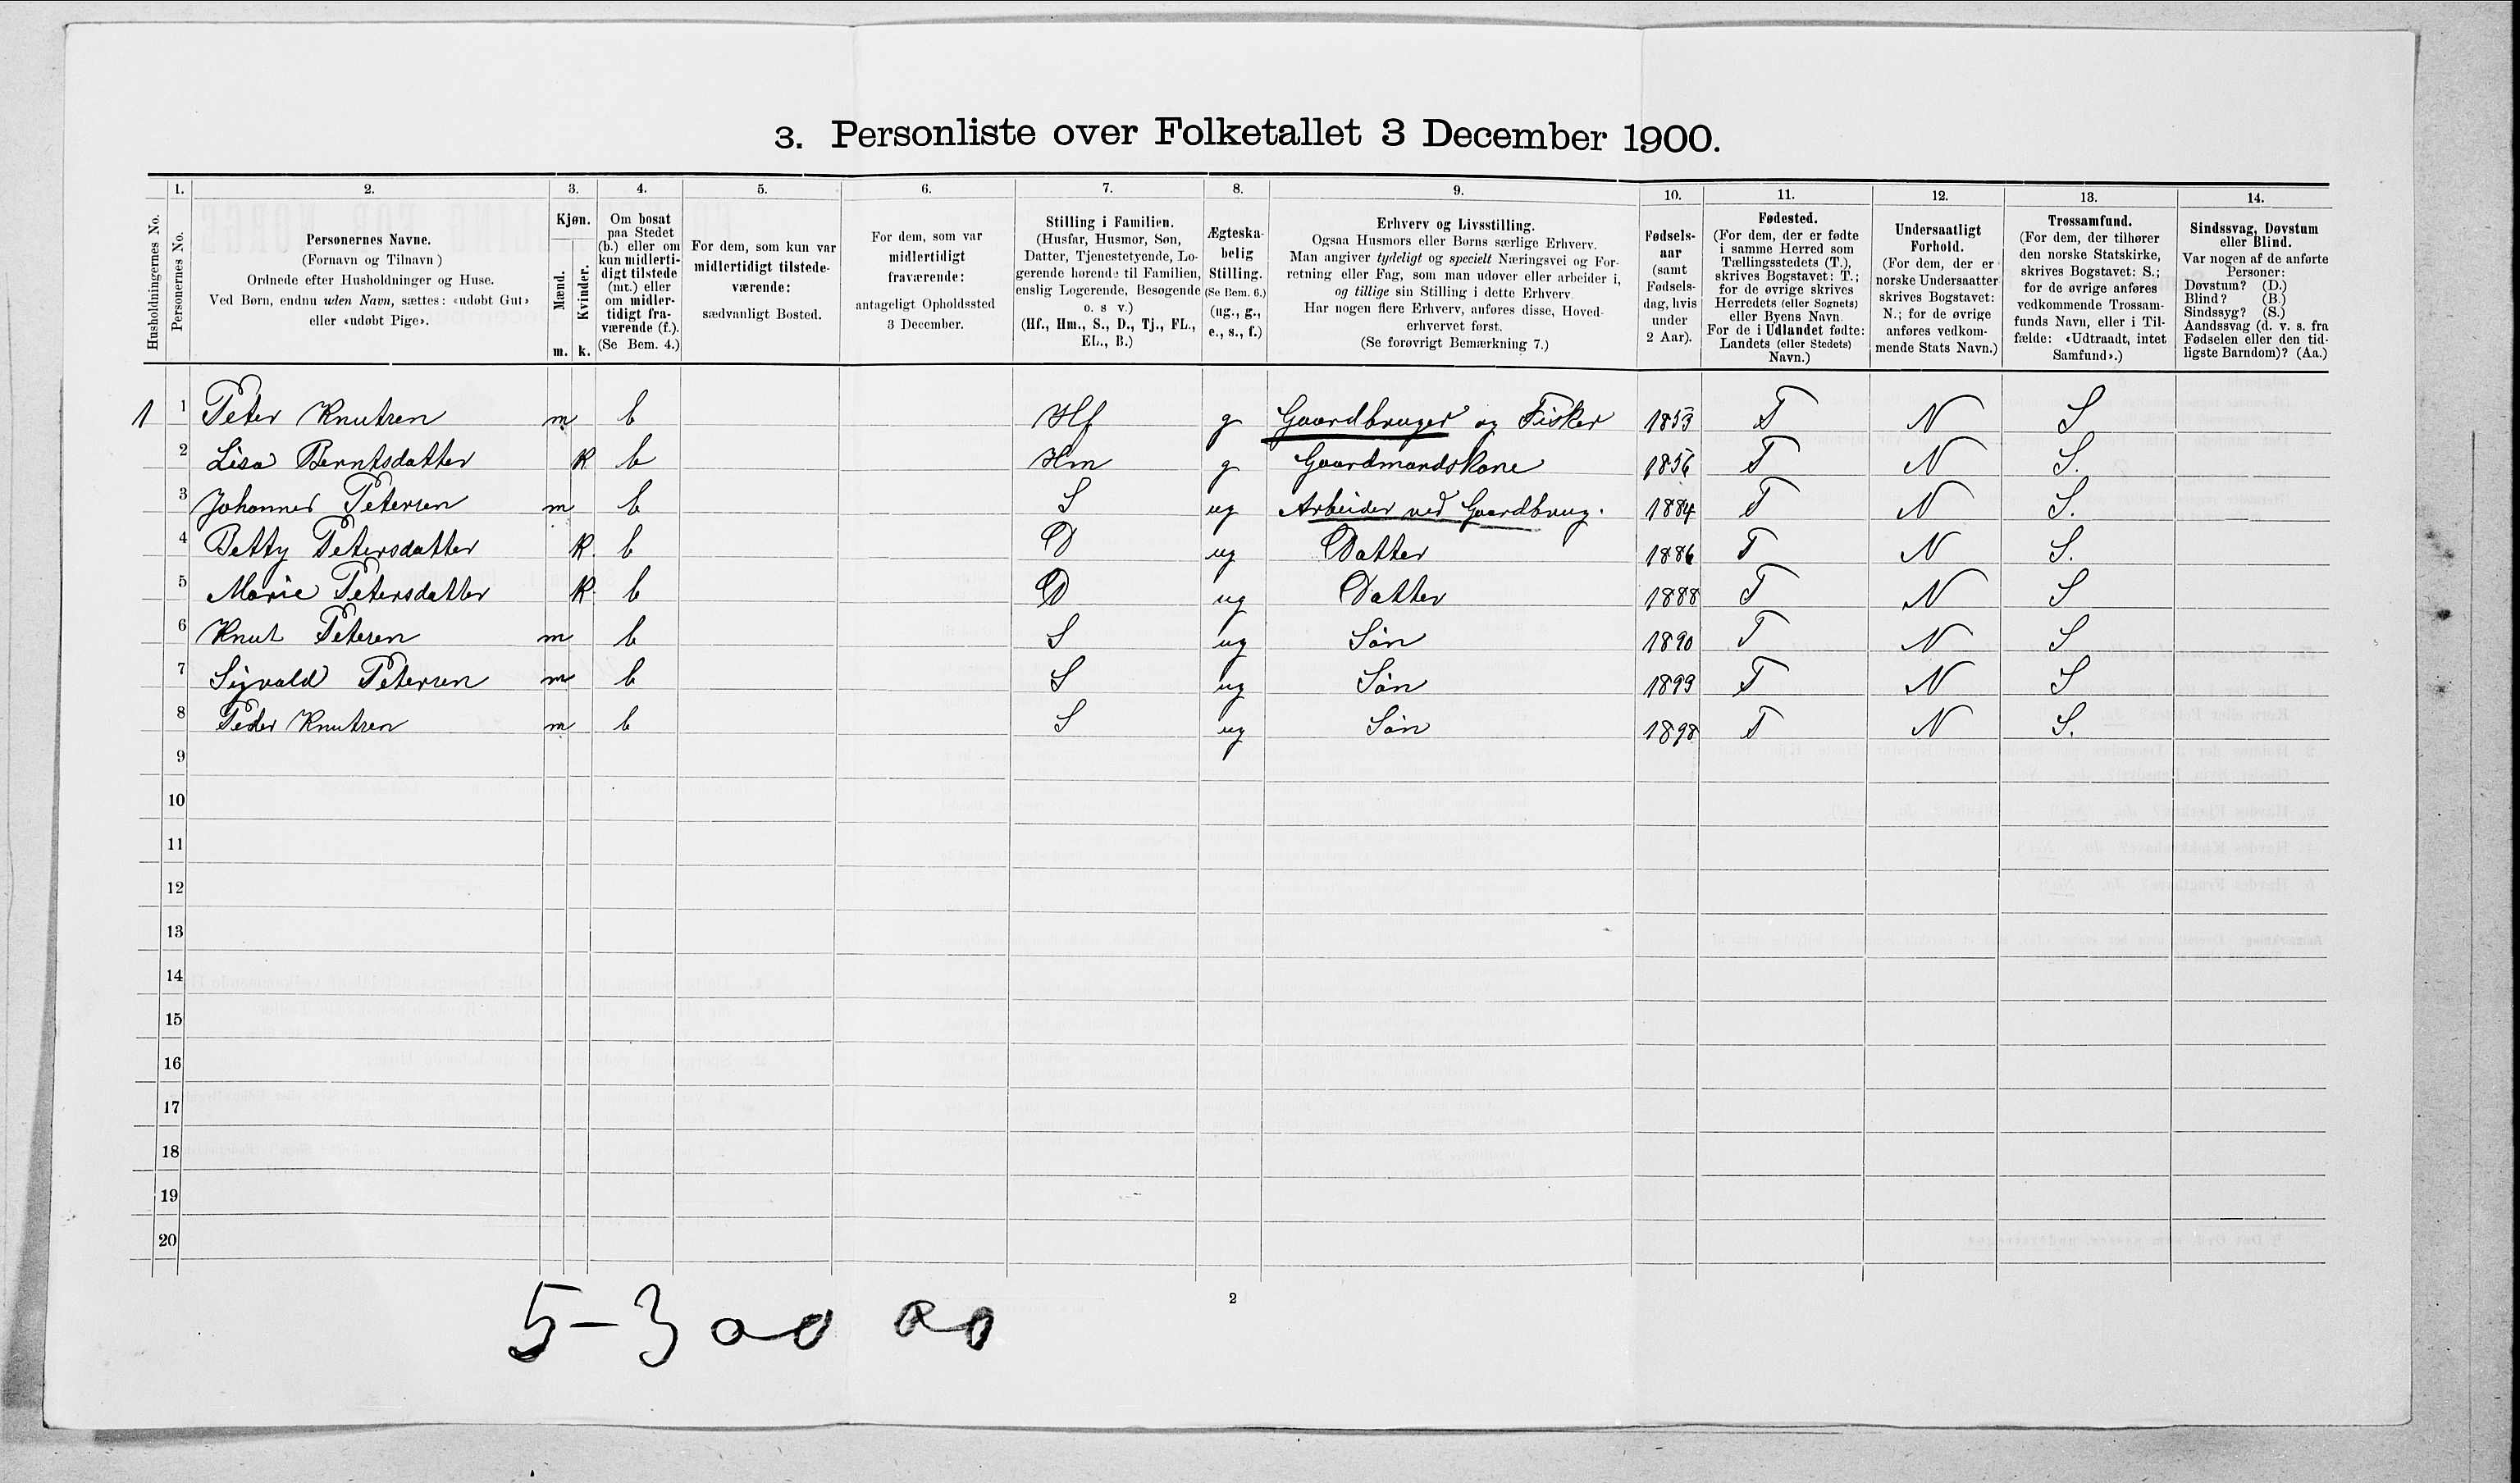 3. Personliste over Folketallet 3 December 1900.
Husholdningernes No.
1.
Personernes No.
2.
Personernes Navne.
(Fornavn og Tilnavn )
Ordnede efter Husholdninger og Huse.
Ved Børn, endnu uden Navn, sættes: «udøbt Gut»
eller «udøbt Pige».
3.
Kjøn.
Mænd.
Kvinder.
m. k.
4.
Om bosat
paa Stedet
(b.) eller om
kun midlerti-
digt tilstede
(mt.) eller
om midler-
tidigt fra-
værende (f.).
(Se Bem. 4.)
5.
For dem, som kun var
midlertidigt tilstede-
værende:
sædvanligt Bosted.
6.
For dem, som var
midlertidigt
fraværende:
antageligt Opholdssted
3 December.
7.
Stilling i Familien.
(Husfar, Husmor, Søn,
Datter, Tjenestetyende, Lo-
gerende hørende til Familien,
enslig Logerende, Besøgende
o. s v.)
(Hf., Hm., S., D., Tj., FL.,
EL., B.)
8.
Ægteska-
belig
Stilling.
(Se Bem. 6.)
(ug., g.,
e., s., f.)
9.
Erhverv og Livsstilling.
Ogsaa Husmors eller Børns særlige Erhverv.
Man angiver tydeligt og specielt Næringsvei og For-
retning eller Fag, som man udøver eller arbeider i,
og tillige sin Stilling i dette Erhverv.
Har nogen flere Erhverv, anføres disse, Hoved-
erhvervet først.
(Se forøvrigt Bemærkning 7.)
10.
Fødsels-
aar
(samt
Fødsels-
dag, hvis
under
2 Aar).
11.
Fødested.
(For dem, der er fødte
i samme Herred som
Tællingsstedets (T.),
skrives Bogstavet: T.;
for de øvrige skrives
Herredets (eller Sognets)
eller Byens Navn.
For de i Udlandet fødte:
Landets (eller Stedets)
Navn.)
12.
Undersaatligt
Forhold.
(For dem, der er
norske Undersaatter
skrives Bogstavet:
N.; for de øvrige
anføres vedkom-
mende Stats Navn.)
13.
Trossamfund.
(For dem, der tilhører
den norske Statskirke,
skrives Bogstavet: S.;
for de øvrige anføres
vedkommende Trossam-
funds Navn, eller i Til-
fælde: «Udtraadt, intet
Samfund».)
14.
Sindssvag, Døvstum
eller Blind.
Var nogen af de anførte
Personer:
Døvstum? (D.)
Blind? (B.)
Sindssyg? (S.)
Aandssvag (d. v. s. fra
Fødselen eller den tid-
ligste Barndom)? (Aa.)
1 1 Peter Knutsen m b Hf g Gaardbruger og Fisker 1853 T N S
2 Lisa Berntsdatter K b Hm g Gaardmandskone 1856 T N S.
3 Johannes Petersen m b S ug Arbeider ved Gaardbrug. 1884 T N S.
4 Betty Petersdatter K. b D ug Datter 1886 T N S.
5 Marie Petersdatter K. b D ug Datter 1888 T N S
6 Knut Petersen m b S ug Søn 1890 T N S
7 Sigvald Petersen m b S ug Søn 1899 T N S
8 Peder Knutsen m b S ug Søn 1898 T N S.
9
10
11
12
13
14
15
16
17
18
19
20
2
5-3 00 00